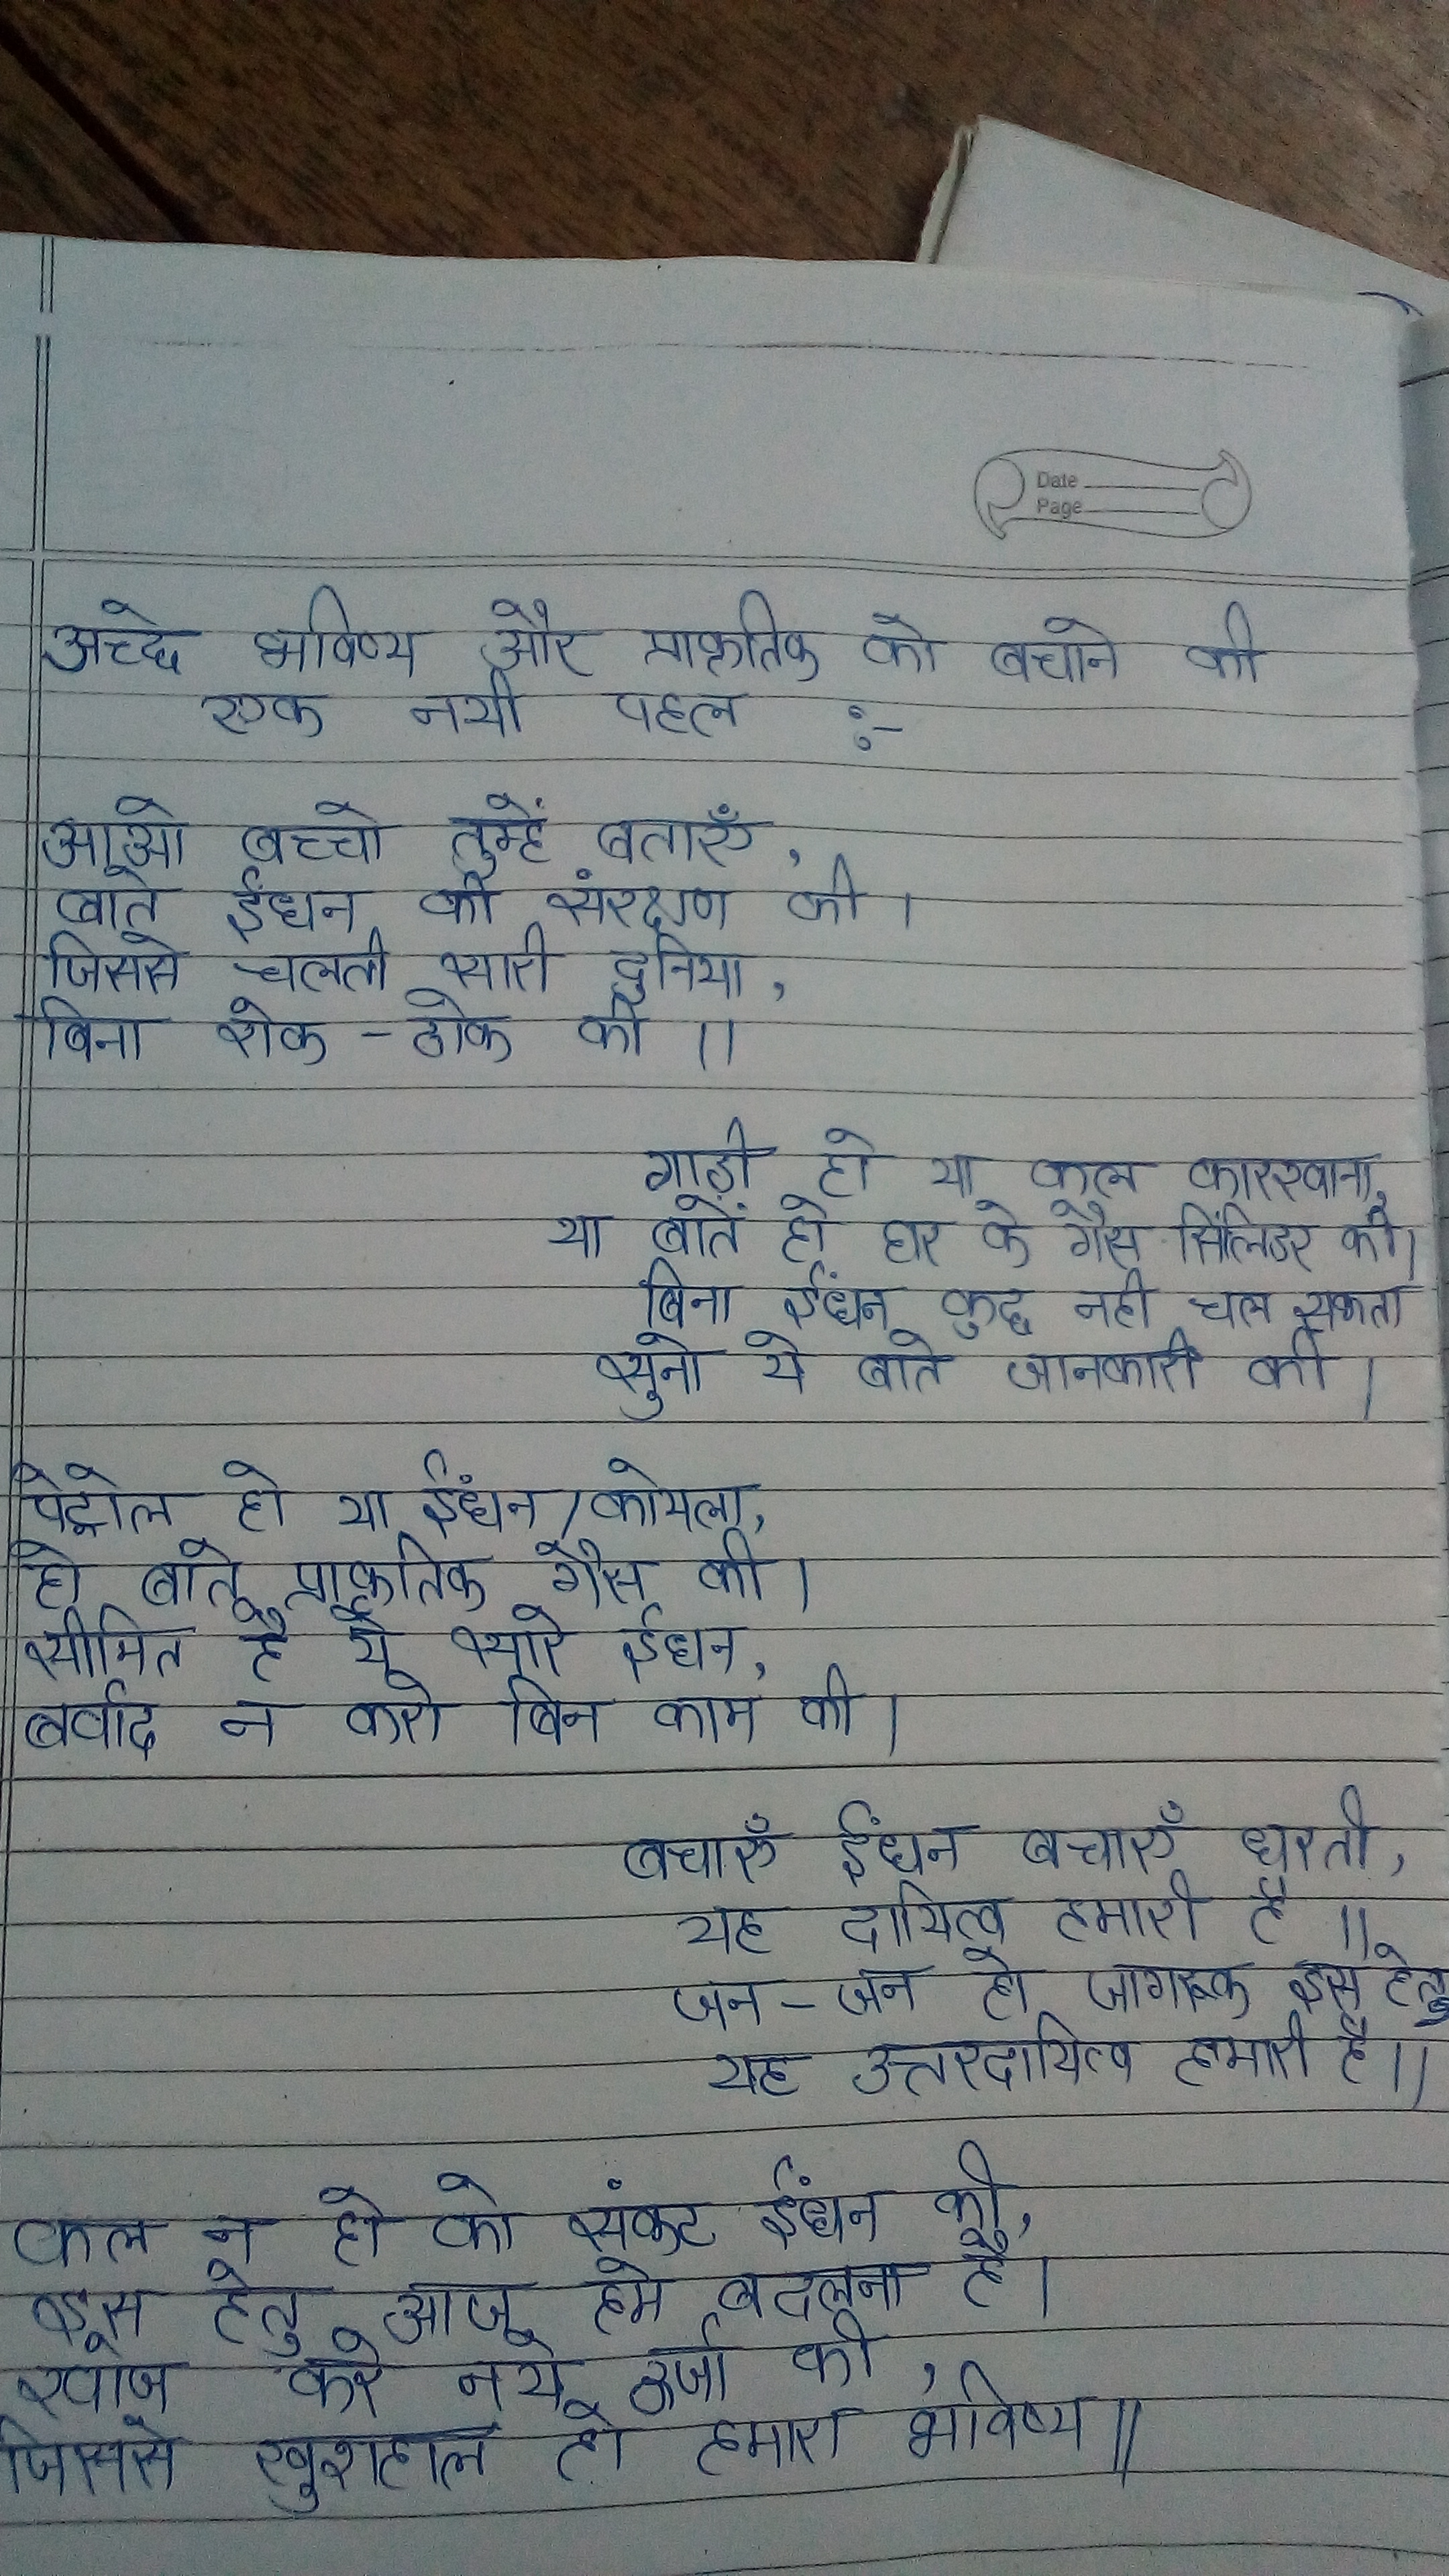 Date
Page
अच्छे भविष्य और प्राकृतिक को बचाने की
एक नयी पहल :-
आओ बच्चो तुम्हें बताएँ,
बाते ईंधन की संरक्षण की।
जिससे चलती सारी दुनिया,
बिना रोक-टोक की।।
गाड़ी हो या कल कारखाना,
या बातें हो घर के गैस सिलिंडर की।
बिना ईंधन कुछ नही चल सकता
सुनो ये बाते जानकारी की।
पेट्रोल हो या ईंधन/कोयला,
हो बाते प्राकृतिक गैस की।
सीमित है ये सारे ईंधन,
बर्वाद न करो बिन काम की।
बचाएँ ईंधन बचाएँ धरती,
यह दायित्व हमारी है।।
जन-जन हो जागरूक इस हेतु
यह उत्तरदायित्व हमारी है।।
कल न हो को संकट ईंधन की,
इस हेतु आज हमे बदलना है।
खोज करे नये ऊर्जा की,
जिससे खुशहाल हो हमारा भविष्य॥